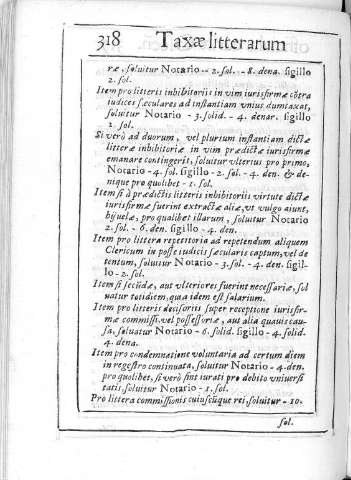 318 Taxæ litterarum
ræ, soluitur Notario -- 2. sol. - 8. dena. sigillo
2. sol.
Item pro litteris inhibitoriis in vim iurisfirmæ cõtra
iudices sæculares ad instantiam vnius dumtaxat,
soluitur Notario - 3. solid. - 4. denar. sigillo
2. sol.
Si verò ad duorum, vel plurium instantiam dictæ
litteræ inhibitoriæ in vim prædictæ iurisfirmæ
emanare contingerit, soluitur vlterius pro primo,
Notario - 4. sol. sigillo - 2. sol. - 4. den. & de-
nique pro quolibet - 1. sol.
Item si à prædictis litteris inhibitoriis virtute dictæ
iurisfirmæ fuerint extractæ aliæ, vt vulgo aiunt,
bijuelæ, pro qualibet illarum, soluitur Notario
2. sol. - 6. den. sigillo - 4. den.
Item pro littera repetitoria ad repetendum aliquem
Clericum in posse iudicis sæcularis captum, vel de
tentum, soluitur Notario - 3. sol. - 4. den. sigil-
lo - 2. sol.
Item si secũdæ, aut vlteriores fuerint necessariæ, sol
uatur totidem, quia idem est salarium.
Item pro litteris decisoriis super receptione iurisfir-
mæ commissi. vel possessoriæ, aut alia quauis cau-
sa, soluatur Notario - 6. solid. sigillo - 4. solid.
4. dena.
Item pro condemnatione voluntaria ad certum diem
in regestro continuata, soluitur Notario - 4. den.
pro quolibet, si verò sint iurati pro debito vniuersi
tatis, soluitur Notario - 1. sol.
Pro littera commissionis cuiuscũque rei, soluitur - 10.
sol.